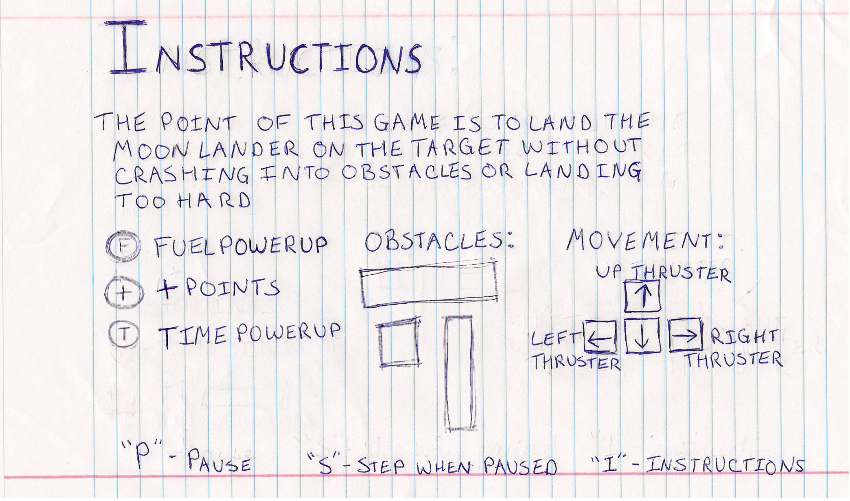 INSTRUCTIONS
THE POINT OF THIS GAME IS TO LAND THE
MOON LANDER ON THE TARGET WITHOUT
CRASHING INTO OBSTACLES OR LANDING
TOO HARD
F FUEL POWERUP
+ + POINTS
T TIME POWERUP
OBSTACLES:
MOVEMENT:
UP THRUSTER
↑
LEFT ← ↓ → RIGHT
THRUSTER THRUSTER
"P" - PAUSE "S" - STEP WHEN PAUSED "I" - INSTRUCTIONS